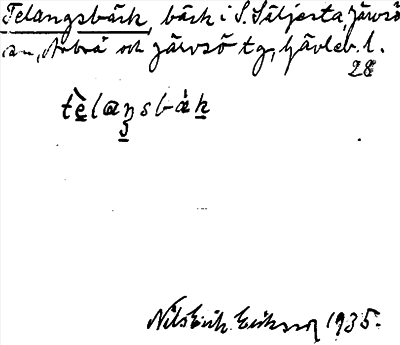 Telangsbäck, bäck i S. Siljesta, Järvsö
sn, Arbrå och Järvsö tg, Gävleb. l.
28
tèlaŋsbàk
Nils Erik Eriksson 1935.